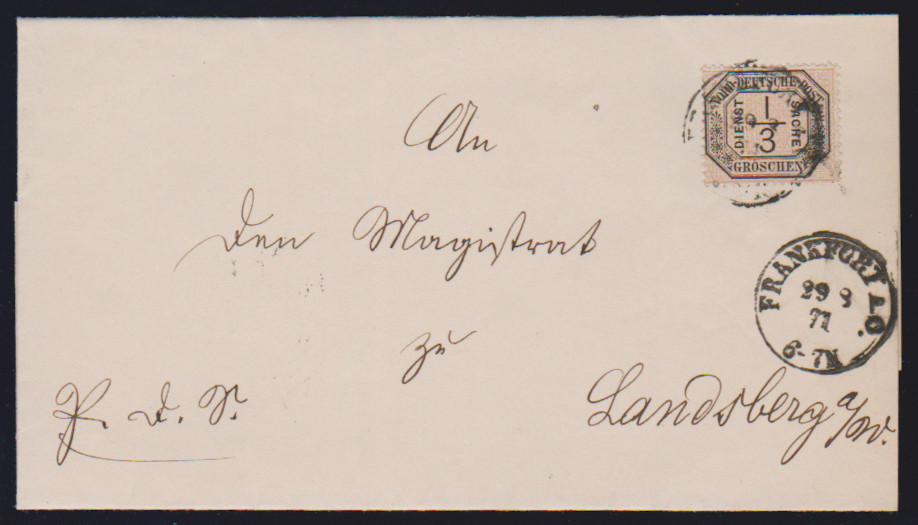 NORDDEUTSCHE-POST
DIENST SACHE
1/3
GROSCHEN
An
den Magistrat
FRANKFURT A.O.
29 8
71
6-7N
zu
P. d. S.
Landsberg a/W.